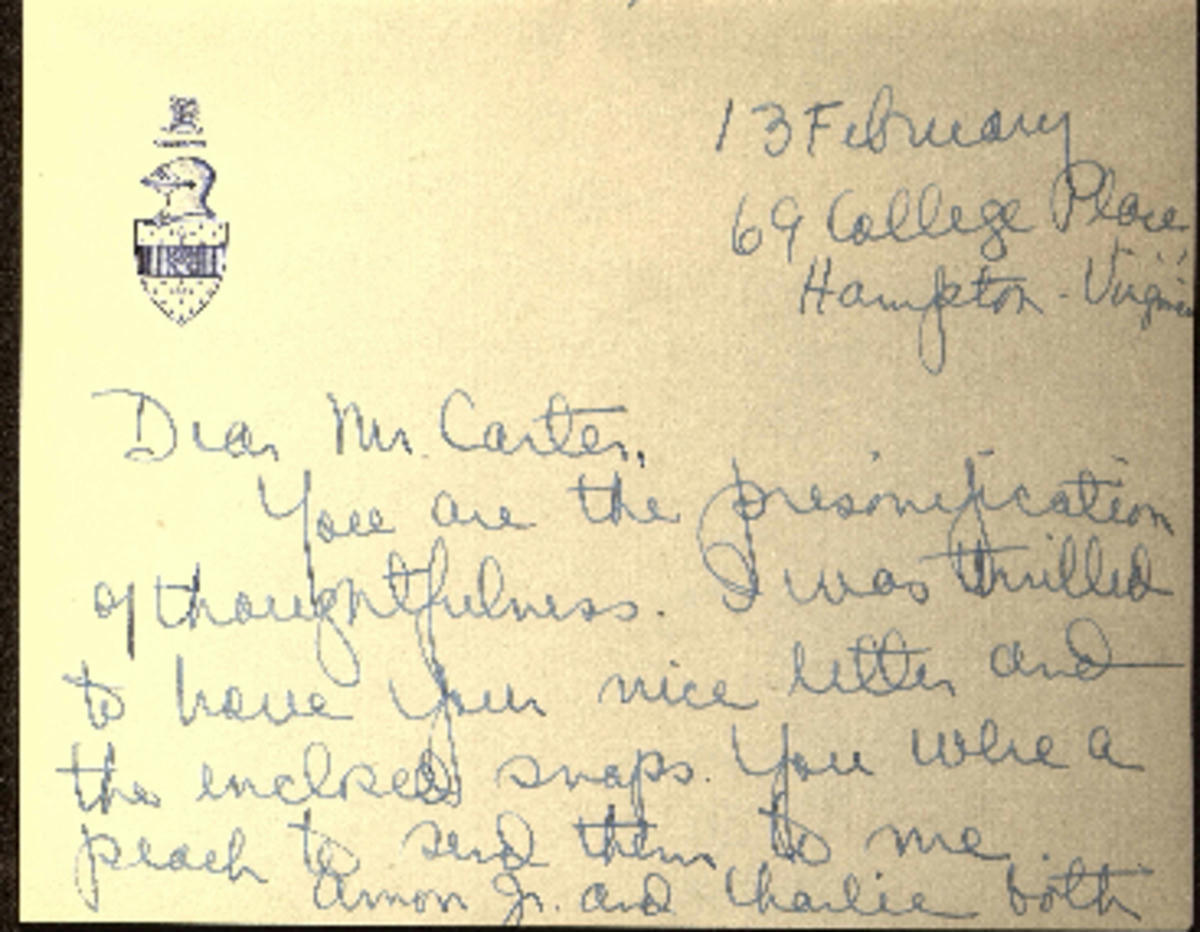 13 February
69 College Place,
Hampton - Virginia
Dear Mr. Carter,
You are the presonification
of thoughtfulness. I was thrilled
to have your nice letter and
the enclosed snaps. You were a
peach to send them to me.
Amon Jr. and Charlie both